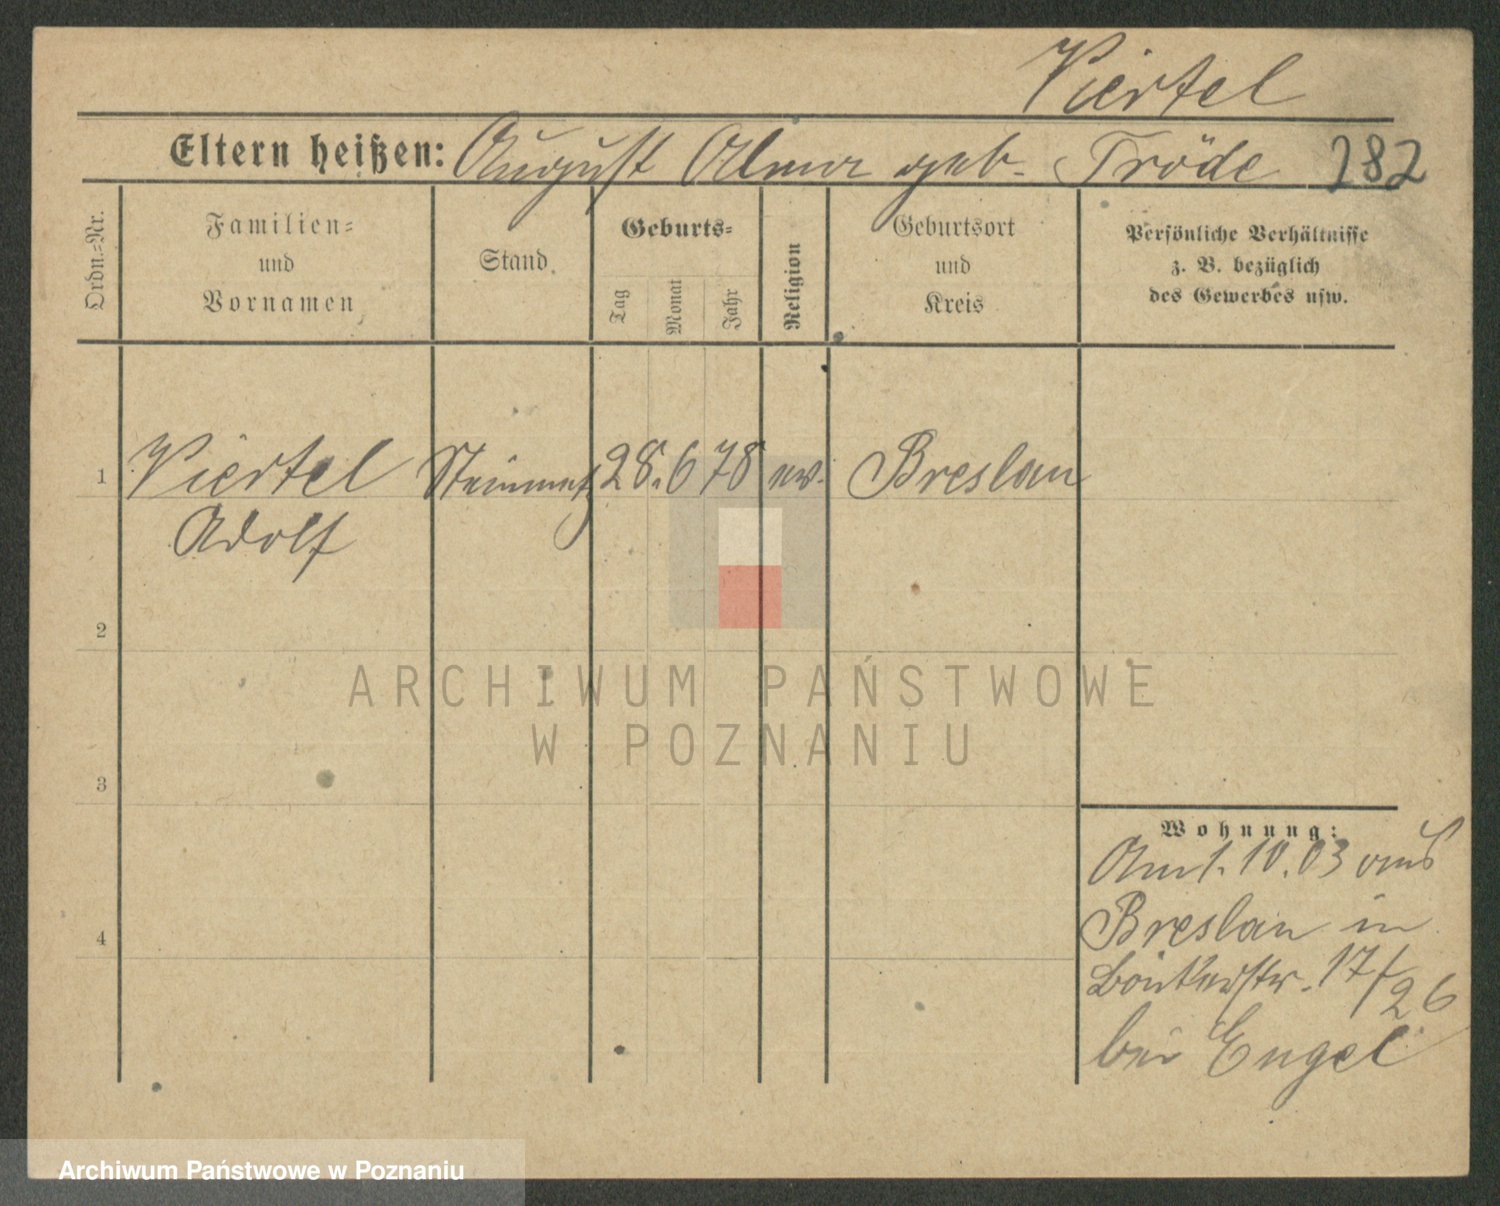 Viertel
Eltern heißen: August Alma geb. Tröde 282
Ordn.-Nr.
Familien=
und
Vornamen
Stand.
Geburts=
Tag
Monat
Jahr
Religion
Geburtsort
und
Kreis
Persönliche Verhältnisse
z. B. bezüglich
des Gewerbes usw.
1 Viertel Steinmetz 28. 6 78 ev. Breslau
Adolf
2
3
4
Wohnung:
Am 1. 10. 03 aus
Breslau in
17/26
bei Engel
ARCHIWUM PAŃSTWOWE
W POZNANIU
Archiwum Państwowe w Poznaniu